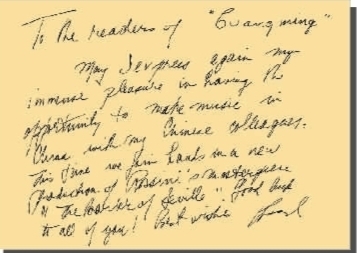 To the readers of "Guangming"
May I express again my
immense pleasure in having the
opportunity to make music in
China with my Chinese colleagues.
This time we join hands in a new
production of Rossini's masterpiece
"The Barber of Seville". Good luck
to all of you! Best wishes